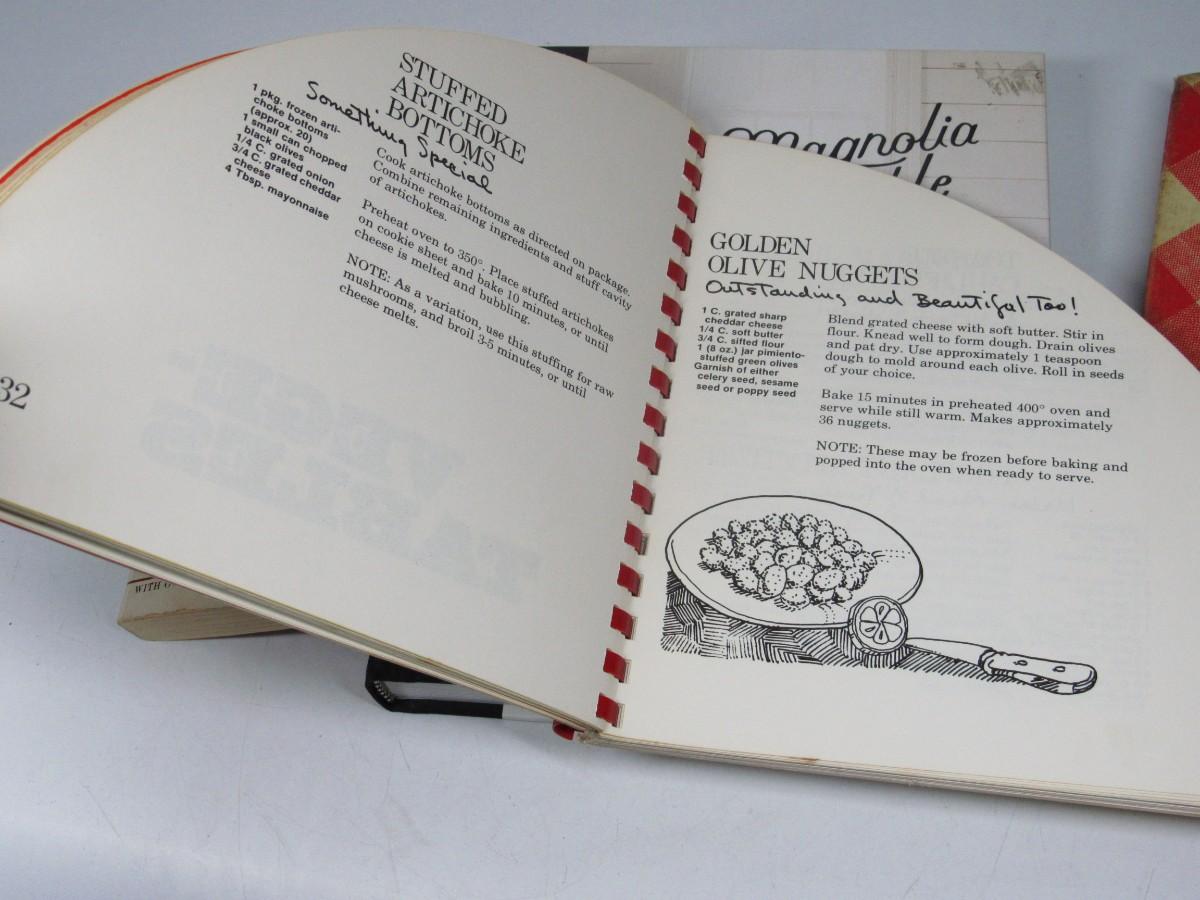 STUFFED
ARTICHOKE
BOTTOMS
Something Special
1 pkg. frozen arti-
choke bottoms
(approx. 20)
1 small can chopped
black olives
1/4 C. grated onion
3/4 C. grated cheddar
cheese
4 Tbsp. mayonnaise
Cook artichoke bottoms as directed on package.
Combine remaining ingredients and stuff cavity
of artichokes.
Preheat oven to 350°. Place stuffed artichokes
on cookie sheet and bake 10 minutes, or until
cheese is melted and bubbling.
NOTE: As a variation, use this stuffing for raw
mushrooms, and broil 3-5 minutes, or until
cheese melts.
32
Magnolia
GOLDEN
OLIVE NUGGETS
Outstanding and Beautiful Too!
1 C. grated sharp
cheddar cheese
1/4 C. soft butter
3/4 C. sifted flour
1 (8 oz.) jar pimiento-
stuffed green olives
Garnish of either
celery seed, sesame
seed or poppy seed
Blend grated cheese with soft butter. Stir in
flour. Knead well to form dough. Drain olives
and pat dry. Use approximately 1 teaspoon
dough to mold around each olive. Roll in seeds
of your choice.
Bake 15 minutes in preheated 400° oven and
serve while still warm. Makes approximately
36 nuggets.
NOTE: These may be frozen before baking and
popped into the oven when ready to serve.
WITH